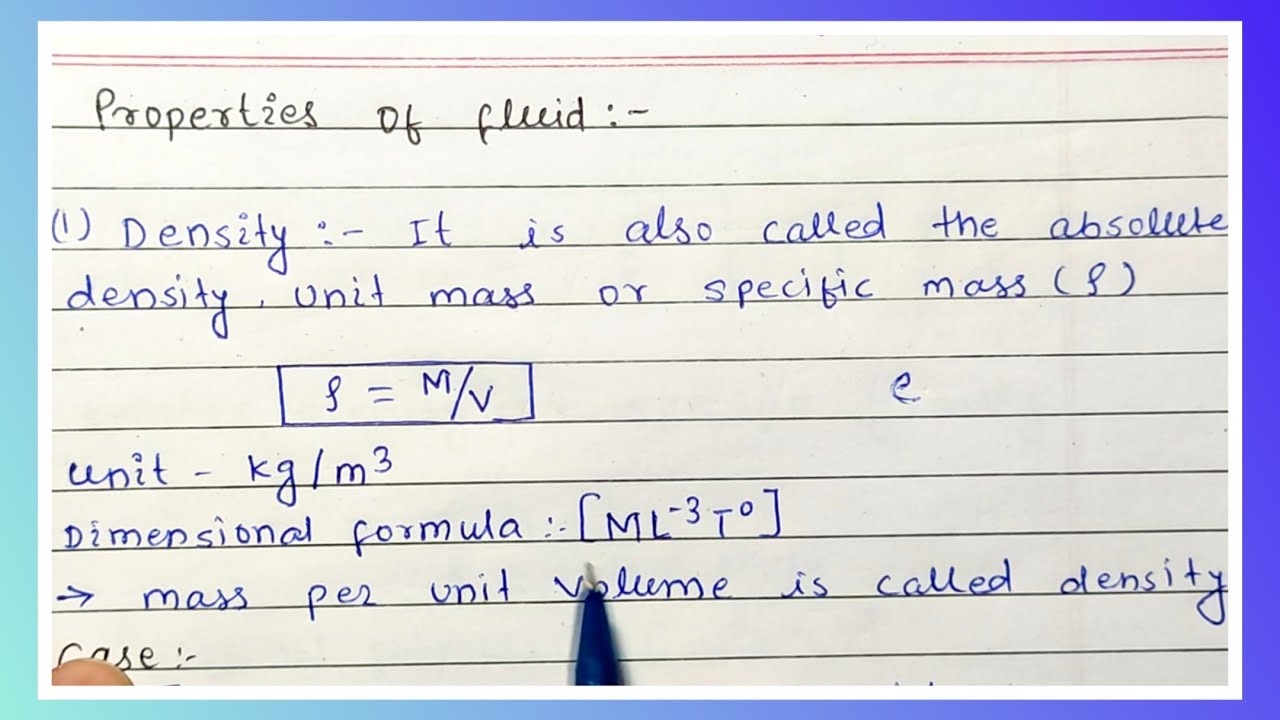 Properties of fluid :-
(1) Density :- It is also called the absolute
density, unit mass or specific mass (ρ)
ρ = M/V e
unit - kg/m³
Dimensional formula :- [ML⁻³T⁰]
→ mass per unit volume is called density
Case :-